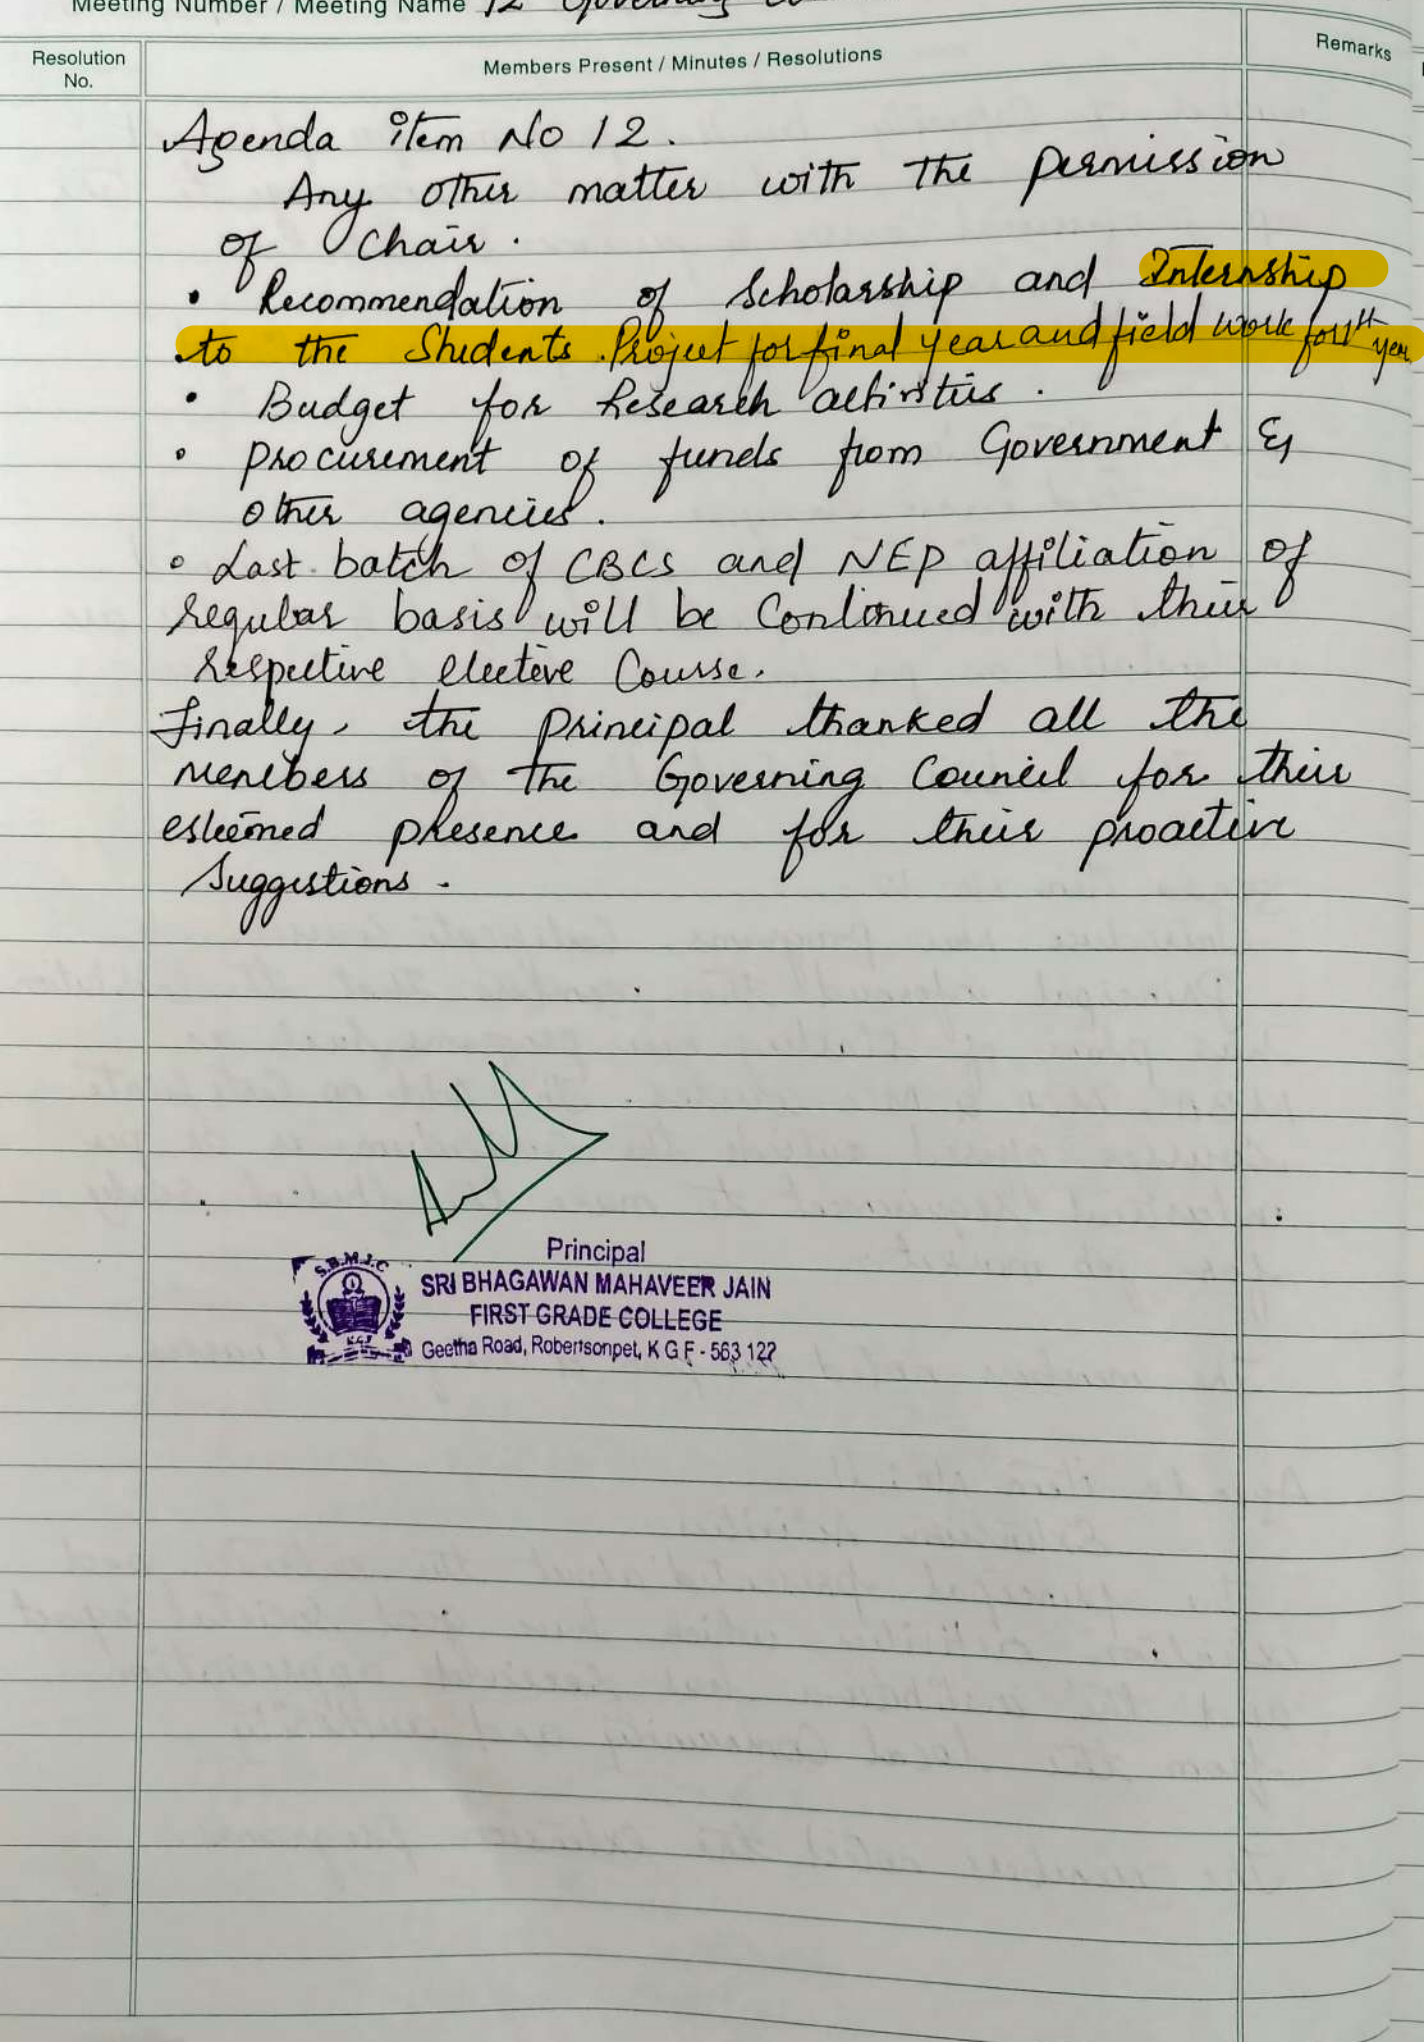 Meeting Number / Meeting Name 12 Governing
Resolution No.
Members Present / Minutes / Resolutions
Remarks
Agenda item No 12.
Any other matter with the permission
of Chair.
• Recommendation of Scholarship and Internship
to the Students. Project for final year and field work for year
• Budget for Research activities.
• Procurement of funds from Government &
other agencies.
• Last batch of CBCS and NEP affiliation of
regular basis will be Continued with their
respective elective Course.
Finally, the Principal thanked all the
members of the Governing Council for their
esteemed presence and for their proactive
Suggestions.
S.B.M.J.C
K.G.F
Principal
SRI BHAGAWAN MAHAVEER JAIN
FIRST GRADE COLLEGE
Geetha Road, Robertsonpet, K G F - 563 122